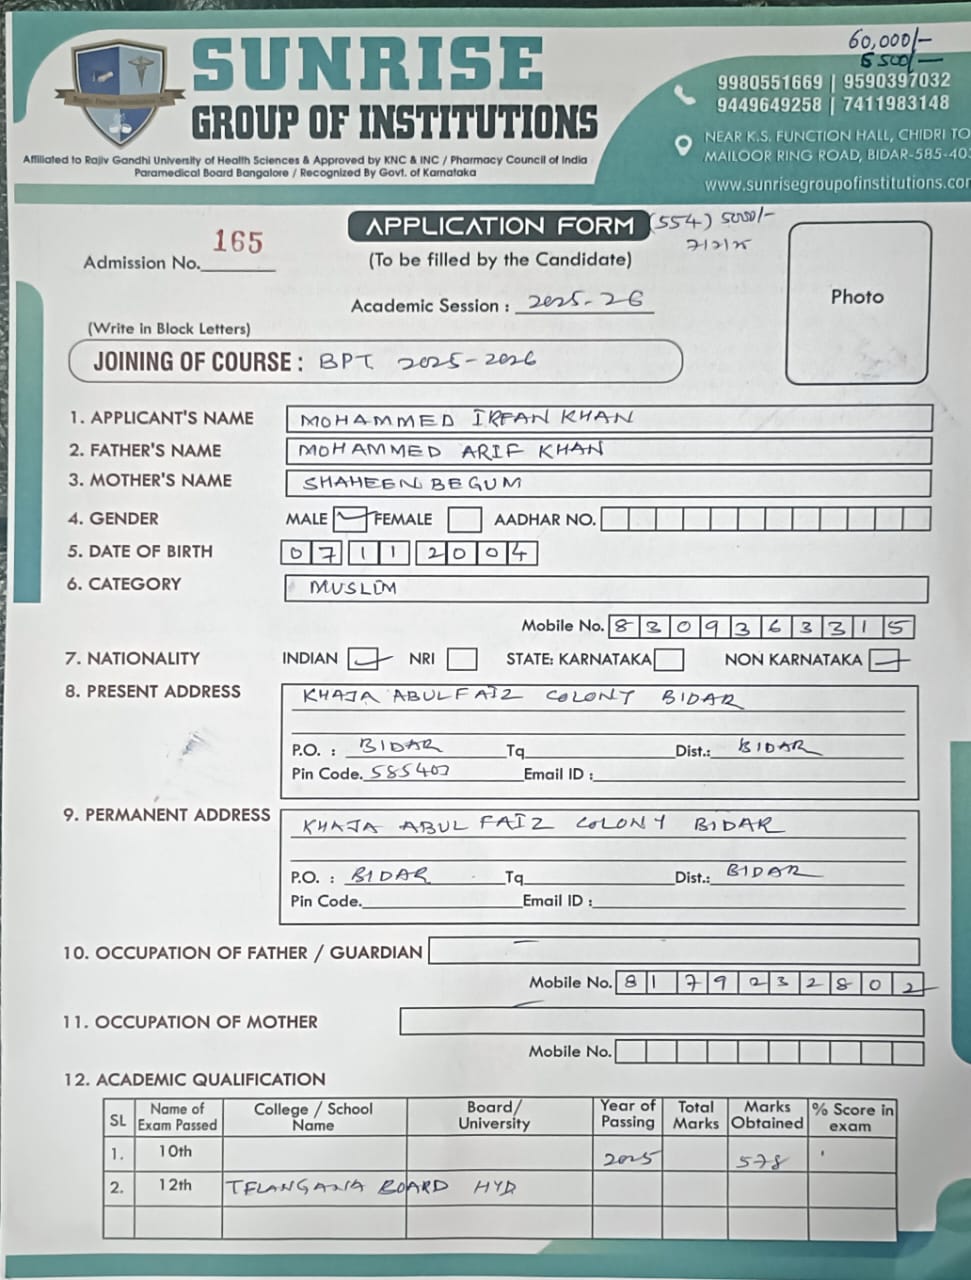 60,000/-
5500/-
SUNRISE
GROUP OF INSTITUTIONS
9980551669 | 9590397032
9449649258 | 7411983148
Affiliated to Rajiv Gandhi University of Health Sciences & Approved by KNC & INC / Pharmacy Council of India
Paramedical Board Bangalore / Recognized By Govt. of Karnataka
NEAR K.S. FUNCTION HALL, CHIDRI TO
MAILOOR RING ROAD, BIDAR-585-403
www.sunrisegroupofinstitutions.com
APPLICATION FORM (554) 5000/-
Admission No. 165
(To be filled by the Candidate)
Academic Session : 2025-26
Photo
(Write in Block Letters)
JOINING OF COURSE : BPT 2025-2026
1. APPLICANT'S NAME MOHAMMED IRFAN KHAN
2. FATHER'S NAME MOHAMMED ARIF KHAN
3. MOTHER'S NAME SHAHEEN BEGUM
4. GENDER MALE FEMALE AADHAR NO.
5. DATE OF BIRTH 07 11 2004
6. CATEGORY MUSLIM
Mobile No. 8309363315
7. NATIONALITY INDIAN NRI STATE: KARNATAKA NON KARNATAKA
8. PRESENT ADDRESS KHAJA ABUL FAIZ COLONY BIDAR
P.O. : BIDAR Tq Dist.: BIDAR
Pin Code. 585401 Email ID :
9. PERMANENT ADDRESS KHAJA ABUL FAIZ COLONY BIDAR
P.O. : BIDAR Tq Dist.: BIDAR
Pin Code. Email ID :
10. OCCUPATION OF FATHER / GUARDIAN
Mobile No. 8179232802
11. OCCUPATION OF MOTHER
Mobile No.
12. ACADEMIC QUALIFICATION
SL Name of Exam Passed College / School Name Board/ University Year of Passing Total Marks Marks Obtained % Score in exam
1. 10th 2025 578
2. 12th TELANGANA BOARD HYD